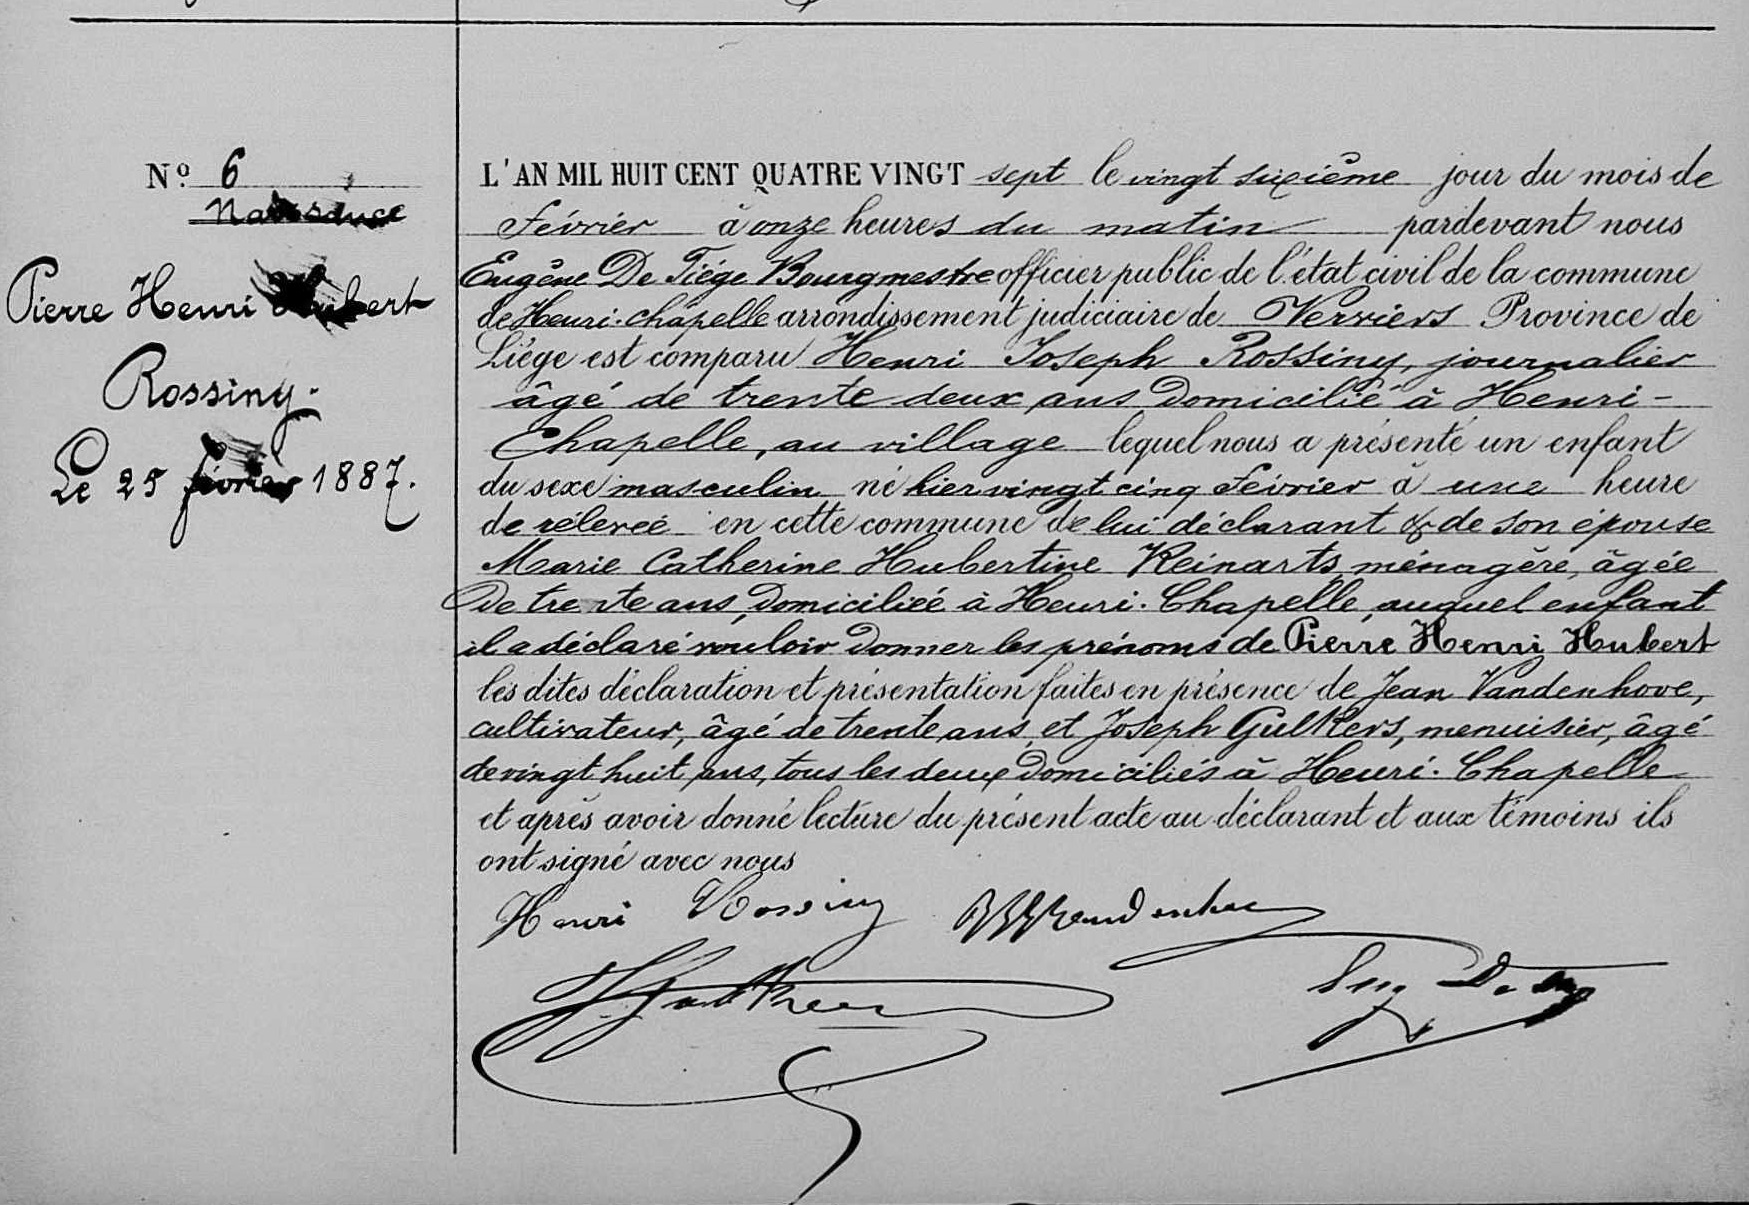 Nº 6
Naissance
Pierre Henri Hubert
Rossiny.
Le 25 février 1887.
L'AN MIL HUIT CENT QUATRE VINGT sept le vingt sixième jour du mois de
Février à onze heures du matin pardevant nous
Eugène De Tiége Bourgmestre officier public de l'état civil de la commune
de Henri-chapelle arrondissement judiciaire de Verviers Province de
Liége est comparu Henri Joseph Rossiny, journalier
âgé de trente deux ans domicilié à Henri-
Chapelle, au village lequel nous a présenté un enfant
du sexe masculin né hier vingt cinq Février à une heure
de relevée en cette commune de lui déclarant & de son épouse
Marie Catherine Hubertine Reinarts, ménagère, âgée
de trente ans, domiciliée à Henri-Chapelle, auquel enfant
il a déclaré vouloir donner les prénoms de Pierre Henri Hubert
les dites déclaration et présentation faites en présence de Jean Vandenhove,
cultivateur, âgé de trente ans, et Joseph Gulkers, menuisier, âgé
de vingt huit ans, tous les deux domiciliés à Henri-Chapelle
et après avoir donné lecture du présent acte au déclarant et aux témoins ils
ont signé avec nous
Henri Rossiny